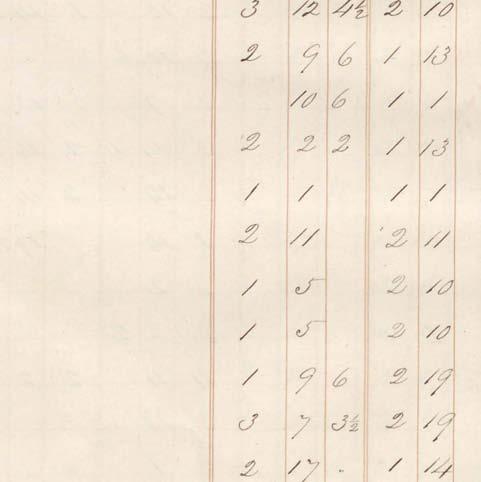 3 12 4½ 2 10
2 9 6 1 13
10 6 1 1
2 2 2 1 13
1 1 1 1
2 11 2 11
1 5 2 10
1 5 2 10
1 9 6 2 19
3 7 3½ 2 19
2 17 - 1 14